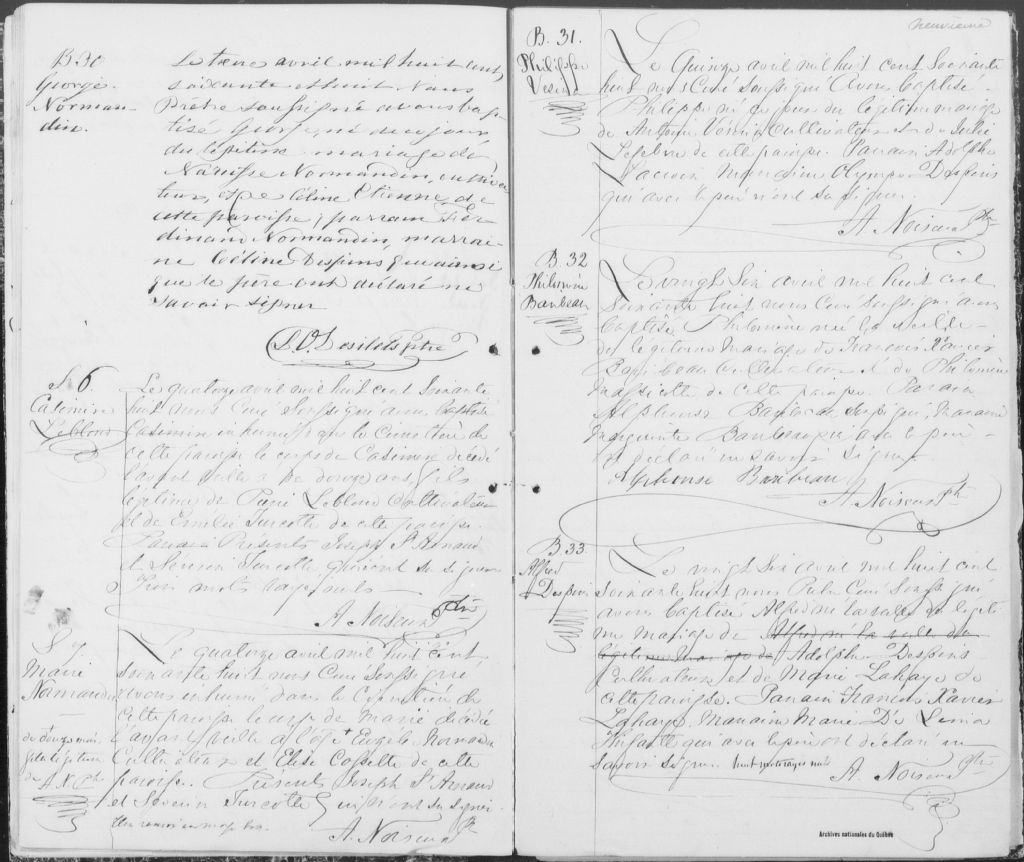 B 30
George
Norman-
din.
Le treize avril mil huit cent
soixante et huit Nous
Prêtre soussigné avons bap
tisé George, né de ce jour
du légitime mariage de
Narcisse Normandin, cultiva
teur, et de Céline Etienne de
cette paroisse; parrain Fer
dinand Normandin, marrai-
ne Céline Despins, qui ainsi
que le père ont déclaré ne
savoir signer
D. O. Desilets ptre
S. 6.
Casimire
Leblond
Le quatorze avril mil huit cent soixante
huit nous Curé soussigné avons baptisé
Casimire inhumé dans le cimetière de
cette paroisse le corps de Casimire décédé
l'avant veille de douze ans fils
légitime de Pierre Leblond Cultivateur
et de Emélie Turcotte de cette paroisse.
Présents Joseph St Arnaud
et Séverin Turcotte qui n'ont su signer
Trois mots rayés nuls
A. Noiseux Ptre
S 7
Marie
Normandin
de douze mois
fille légitime
de
A. N. Ptr
Le quatorze avril mil huit cent
soixante huit nous Curé soussigné
avons inhumé dans le Cimetière de
cette paroisse le corps de Marie décédée
l'avant veille à l'âge † Eusèbe Normandin
Cultivateur et Elise Cossette de cette
paroisse. Présents Joseph St Arnaud
et Séverin Turcotte qui n'ont su signer.
Un renvoi en marge bon.
A. Noiseux Ptr
neuvième
B. 31.
Philippe
Vésina
Le Quinze avril mil huit cent soixante
huit nous Curé soussigné avons baptisé
Philippe né ce jour du légitime mariage
de Antoine Vésina Cultivateur et de Julie
Lefebvre de cette paroisse. Parrain Adolphe
Marraine Olympe Despins
qui avec le père n'ont su signer.
A. Noiseux Ptr
B. 32
Philomène
Baribeau
Le vingt six avril mil huit cent
soixante huit nous Curé soussigné avons
baptisé Philomène née la veille
du légitime mariage de François Xavier
Baribeau cultivateur et de Philomène
Massicotte de cette paroisse. Parrain
Alphonse Baribeau soussigné, Marraine
Marguerite Baribeau qui avec le père
a déclaré ne savoir signer
Alphonse Baribeau
A. Noiseux Ptr
B 33
Alfred
Despins
Le vingt six avril mil huit cent
soixante huit nous Prêtre Curé soussigné
avons baptisé Alfred né la veille du légiti
me mariage de Alfred né la veille du
légitime mariage de Adolphe Despins
Cultivateur et de Marie Lahaye de
cette paroisse. Parrain François Xavier
Lahaye Marraine Marie
qui avec le père ont déclaré ne
savoir signer. huit mots rayés nuls
A. Noiseux Ptr
Archives nationales du Québec